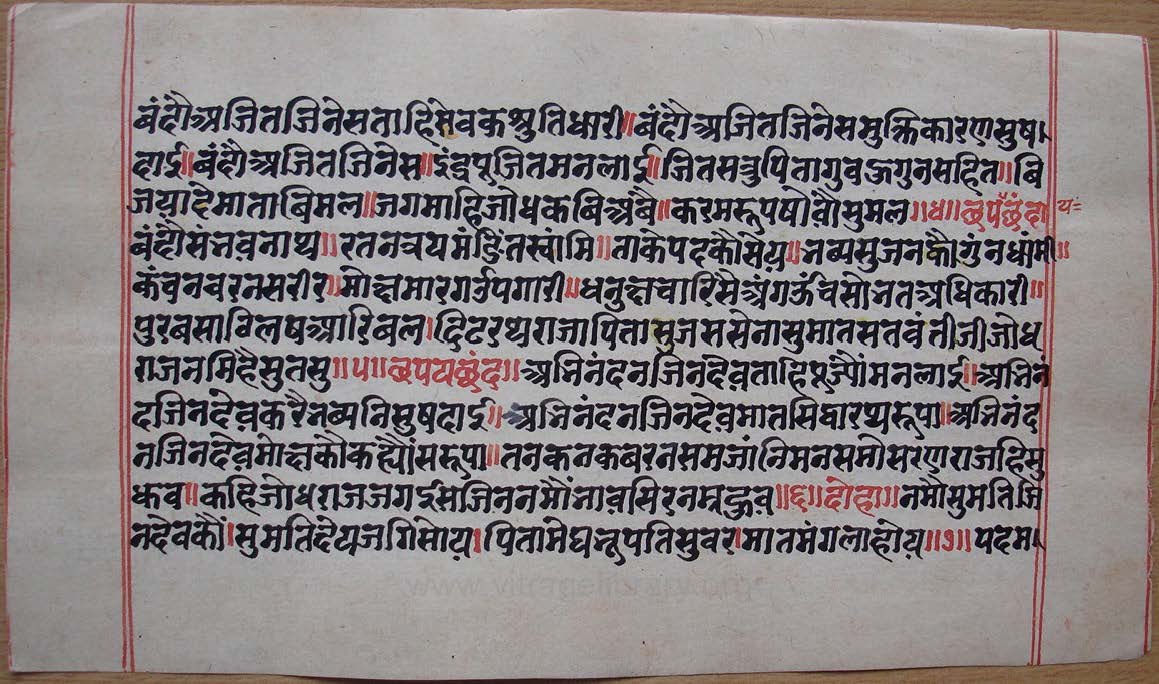 बंदौंअजितजिनेसताहिसेवकश्रुतिधारी॥बंदौंअजितजिनेसमुक्तिकारणसुषा
दाई॥बंदौंअजितजिनेस॥इंद्रपुजितमनलाई॥जितसत्रुपितागुवऊगुनसहित॥बि
जयादेमाताबिमल॥जगमाहिजोधकबिअंबै॥करमरूपषोवौसुमल॥४॥छपैछंदा य=
बंदौसंभवनाथ॥रतनत्रयमंडितस्वांमि॥ताकेपदकौंसेय॥भव्यसुजनकौगुंनधांमी॥
कंचनवरनसरीर॥मोक्षमारगउपगारी॥धनुक्षचारिसैअंगऊंचसोभतअधिकारी॥
पुरबसाविलषआरिबल।दिटरथराजापितासुजससेनासुमातसतवंतीजीजोध
राजनमिहैसुतसु॥५॥छपयछंद॥अभिनंदनजिनदेवताहिपूज्यौंमनलाई॥अभिनं
दजिनदेवकरैभव्यनिसुषदाई॥अभिनंदनजिनदेवमातसिद्धारथरूपा॥अभिनंद
नजिनदेवमोक्षकौकह्यौंसरूपा॥तनकनकबरनसमजांनिमनसमोसरणराजहिसु
धव॥कहिजोधराजजगईसजिननमौंनावसिरनम्रह्वव॥६॥दोहा॥नमौसुमतिजि
नदेवकौं।सुमतिदेयजगिसोय।पितामेघनृपतिसुवर।मातमंगलाहोय॥७॥पदम।
www.vitragelibrary.org